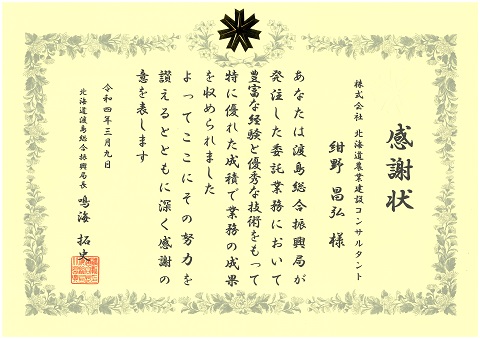 感謝状
株式会社 北海道農業建設コンサルタント
紺野 昌弘 様
あなたは渡島総合振興局が
発注した委託業務において
豊富な経験と優秀な技術をもって
特に優れた成績で業務の成果
を収められました
よってここにその努力を
讃えるとともに深く感謝の
意を表します
令和四年三月九日
北海道渡島総合振興局長 鳴海 拓史